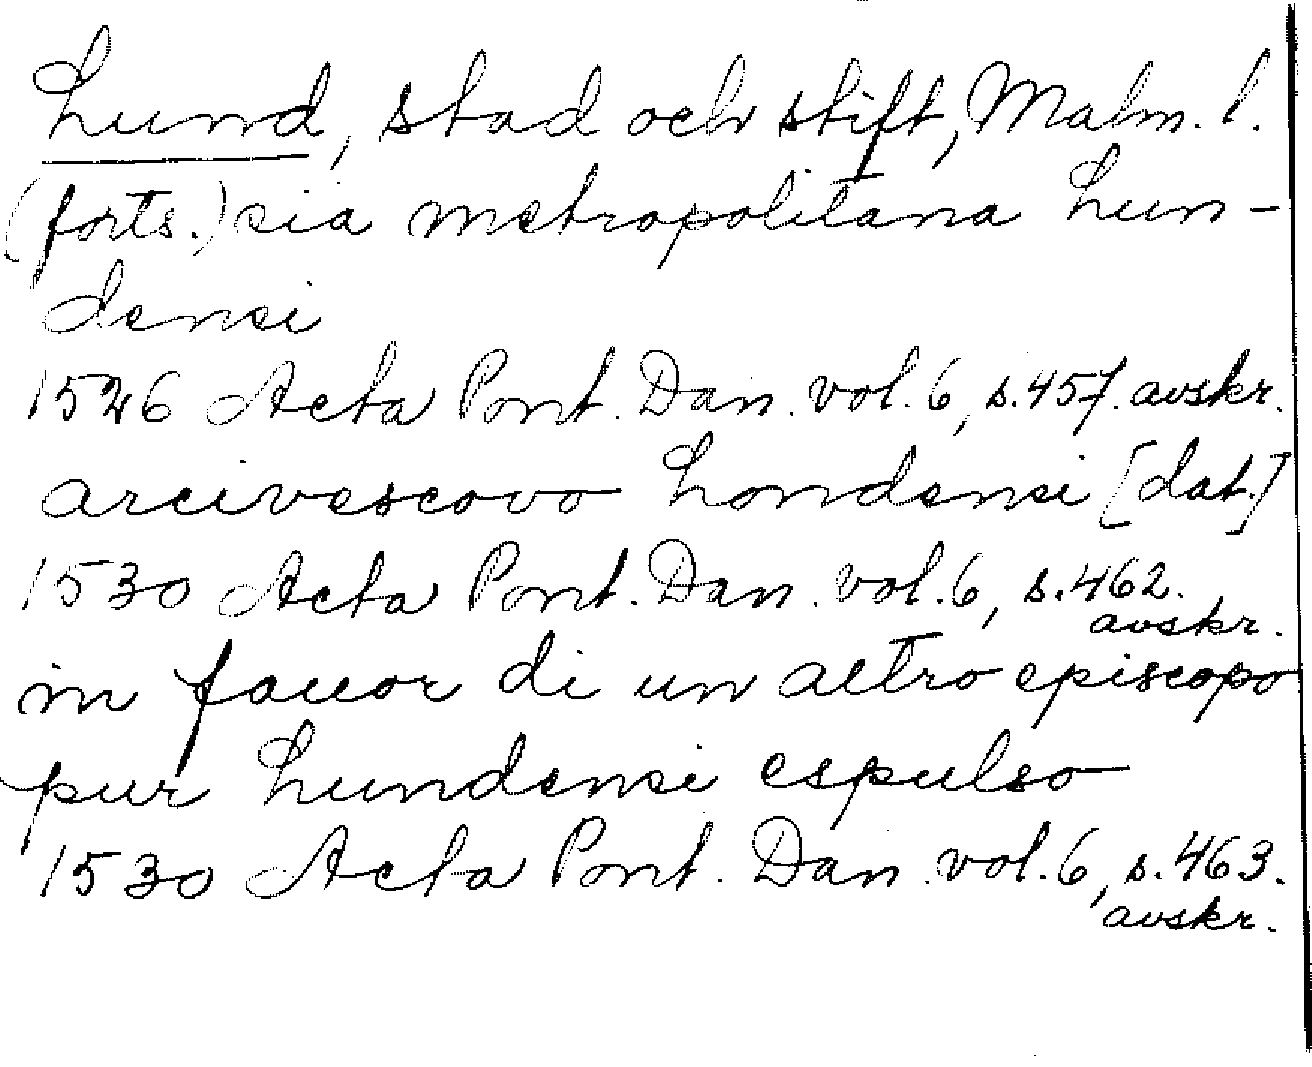 Lund, stad och stift, Malm. l.
(forts.) sia metropolitana Lun-
densi
1526 Acta Pont. Dan. vol. 6, s. 457. avskr.
arcivescovo Londensi [dat.]
1530 Acta Pont. Dan. vol. 6, s. 462.
avskr.
in fauor di un altro episcopo
pur Lundensi espulso
1530 Acta Pont. Dan. vol. 6, s. 463.
avskr.